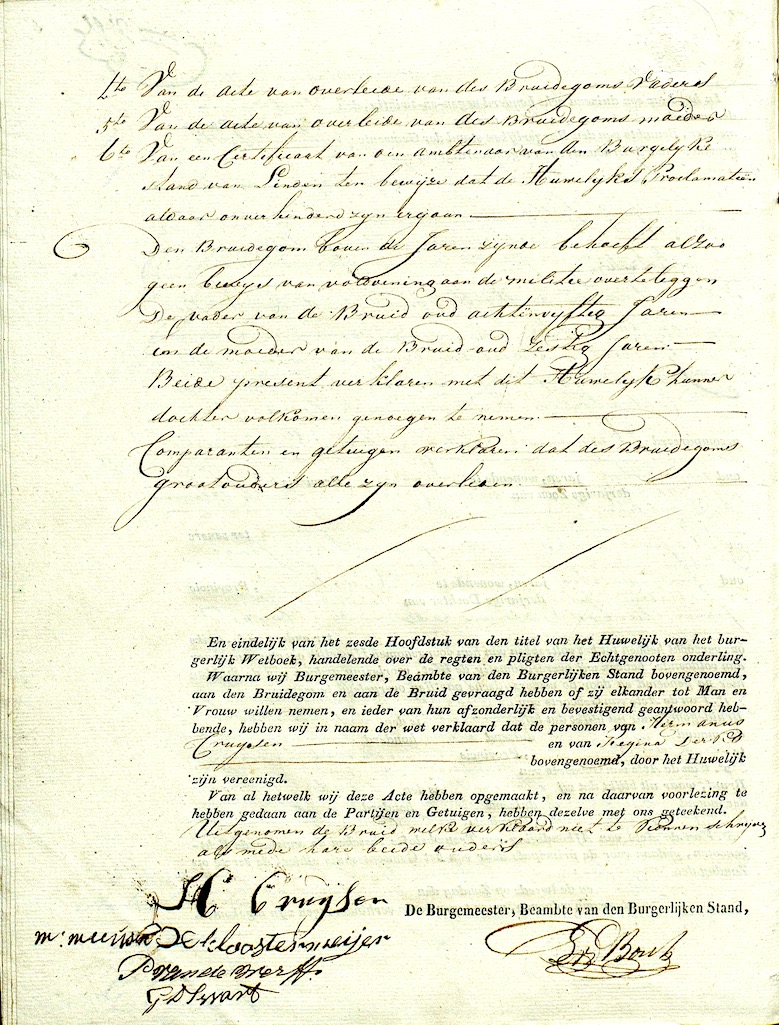 4de Van de acte van overleide van des Bruidegoms Vaders
5de Van de acte van overleide van des Bruidegoms moeder
6de Van een Certificaat van den ambtenaar van den Burgelyke
stand van Linden ten bewyze dat de Huwelyks Proclamatien
aldaar onverhinderd zyn ergaan
Den Bruidegom boven de Jaren zynde behoeft alzoo
geen bewys van voldoening aan de militie overteleggen
De vader van de Bruid oud achtenvyftig Jaren
en de moeder van de Bruid oud zestig Jaren
Beide present verklaren met dit Huwelyk hunner
dochter volkomen genoegen te nemen
Comparanten en getuigen verklaren dat des Bruidegoms
grootouders alle zyn overleden
En eindelijk van het zesde Hoofdstuk van den titel van het Huwelijk van het bur-
gerlijk Wetboek, handelende over de regten en pligten der Echtgenooten onderling.
Waarna wij Burgemeester, Beambte van den Burgerlijken Stand bovengenoemd,
aan den Bruidegom en aan de Bruid gevraagd hebben of zij elkander tot Man en
Vrouw willen nemen, en ieder van hun afzonderlijk en bevestigend geantwoord heb-
bende, hebben wij in naam der wet verklaard dat de personen van Hermanus
Cruysen en van Regina
bovengenoemd, door het Huwelijk
zijn vereenigd.
Van al hetwelk wij deze Acte hebben opgemaakt, en na daarvan voorlezing te
hebben gedaan aan de Partijen en Getuigen, hebben dezelve met ons geteekend.
Uitgenomen de Bruid welke verklaard niet te kunnen schryven
als mede hare beide ouders
H Cruysen
De Burgemeester, Beambte van den Burgerlijken Stand,
Kloostermeijer
P van de Werff
G D Swart